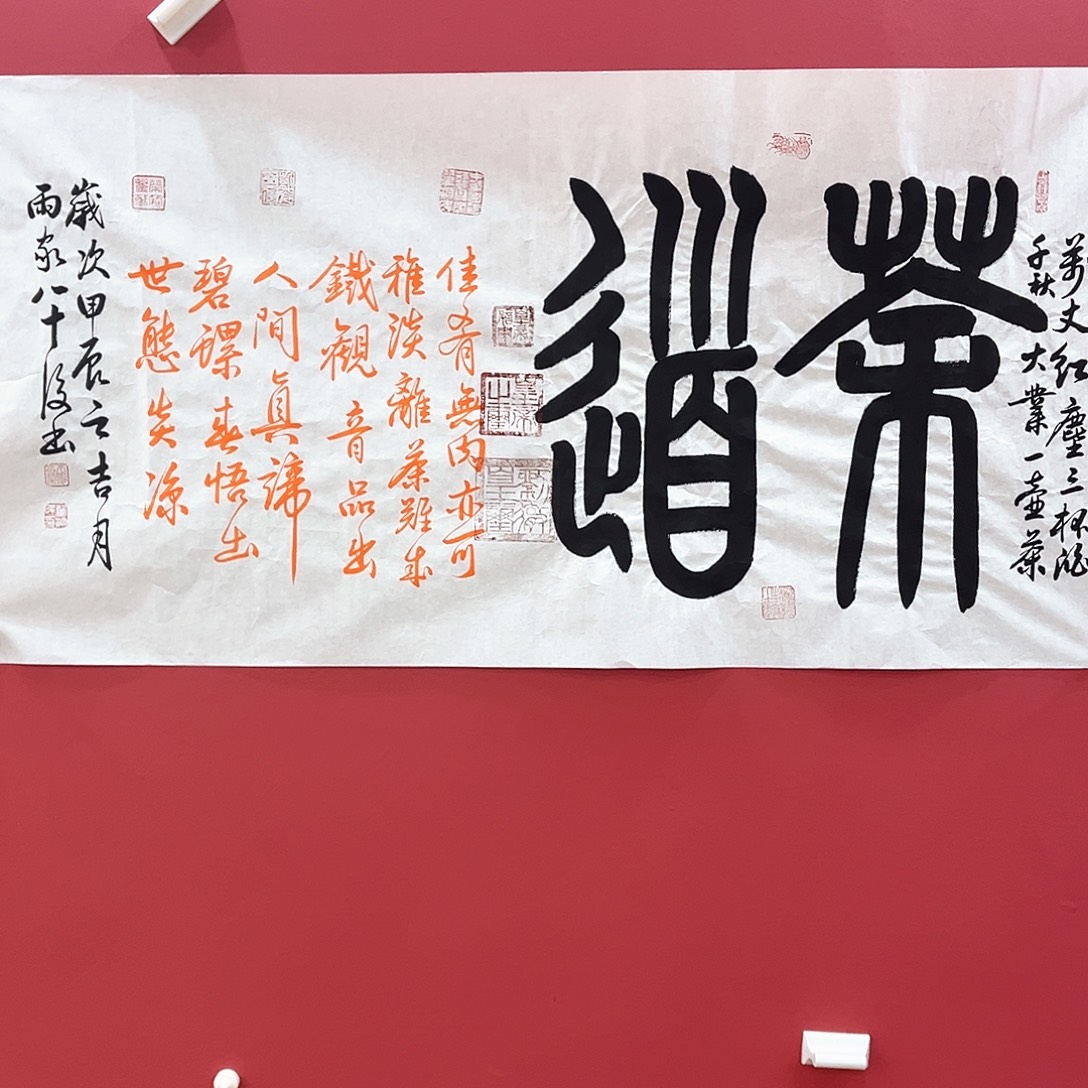 萬丈紅塵三杯酒
千秋大業一壺茶
茶道
佳肴無肉亦可
雅淡離茶難成
鐵觀音品出
人間真諦
碧螺春悟出
世態炎涼
歲次甲辰之吉月
雨家八十後書